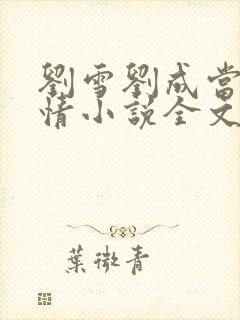 劉雪劉成當
情小說全文
葉微青